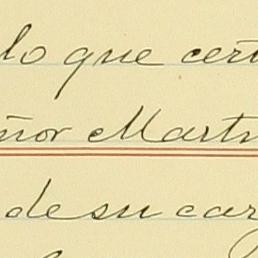 lo que cert
ñor Martn
de su car